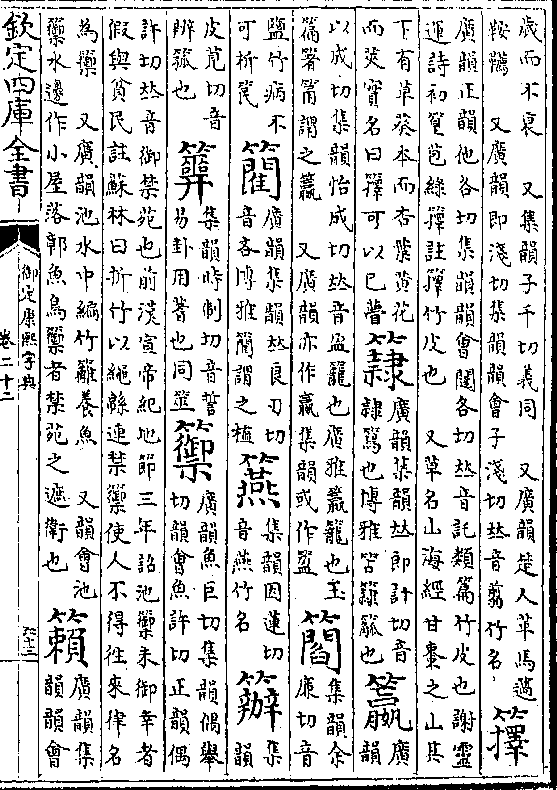 歲而不衰　又集韻子千切義同　又廣韻楚人革馬邁
鞍韉　又廣韻即淺切集韻韻會子淺切𠀤音翦竹名
籜
廣韻正韻他各切集韻韻會闥各切𠀤音託類篇竹皮也謝靈
運詩初篁苞綠籜註籜竹皮也　又草名山海經甘棗之山其
下有草葵本而杏葉黃花
而莢實名曰籜可以已瞢
廣韻集韻𠀤郎計切音
隸也博雅笞也
籯
廣
韻
以成切集韻怡成切𠀤音盈籠也廣雅籯籠也玉
篇箸筩謂之籯　又廣韻亦作籝集韻或作
集韻余
廉切音
鹽竹病不
可析
廣韻集韻𠀤良刃切
音吝博雅簡謂之植
集韻因蓮切
音燕竹名
集
韻
皮莧切音
辦箛也
集韻時制切音誓
易卦用蓍也同筮
籞
廣韻魚巨切集韻偶舉
切韻會魚許切正韻偶
許切𠀤音御禁苑也前漢宣帝紀地節三年詔池籞未御幸者
假與貧民註蘇林曰折竹以繩緜連禁籞使人不得往來律名
為籞　又廣韻池水中編竹籬養魚　又韻會池
籞水邊作小屋落鄣魚鳥籞者禁苑之遮衛也
籟
廣韻集
韻韻會
欽定四庫全書
御定康熙字典
卷二十二
六十三